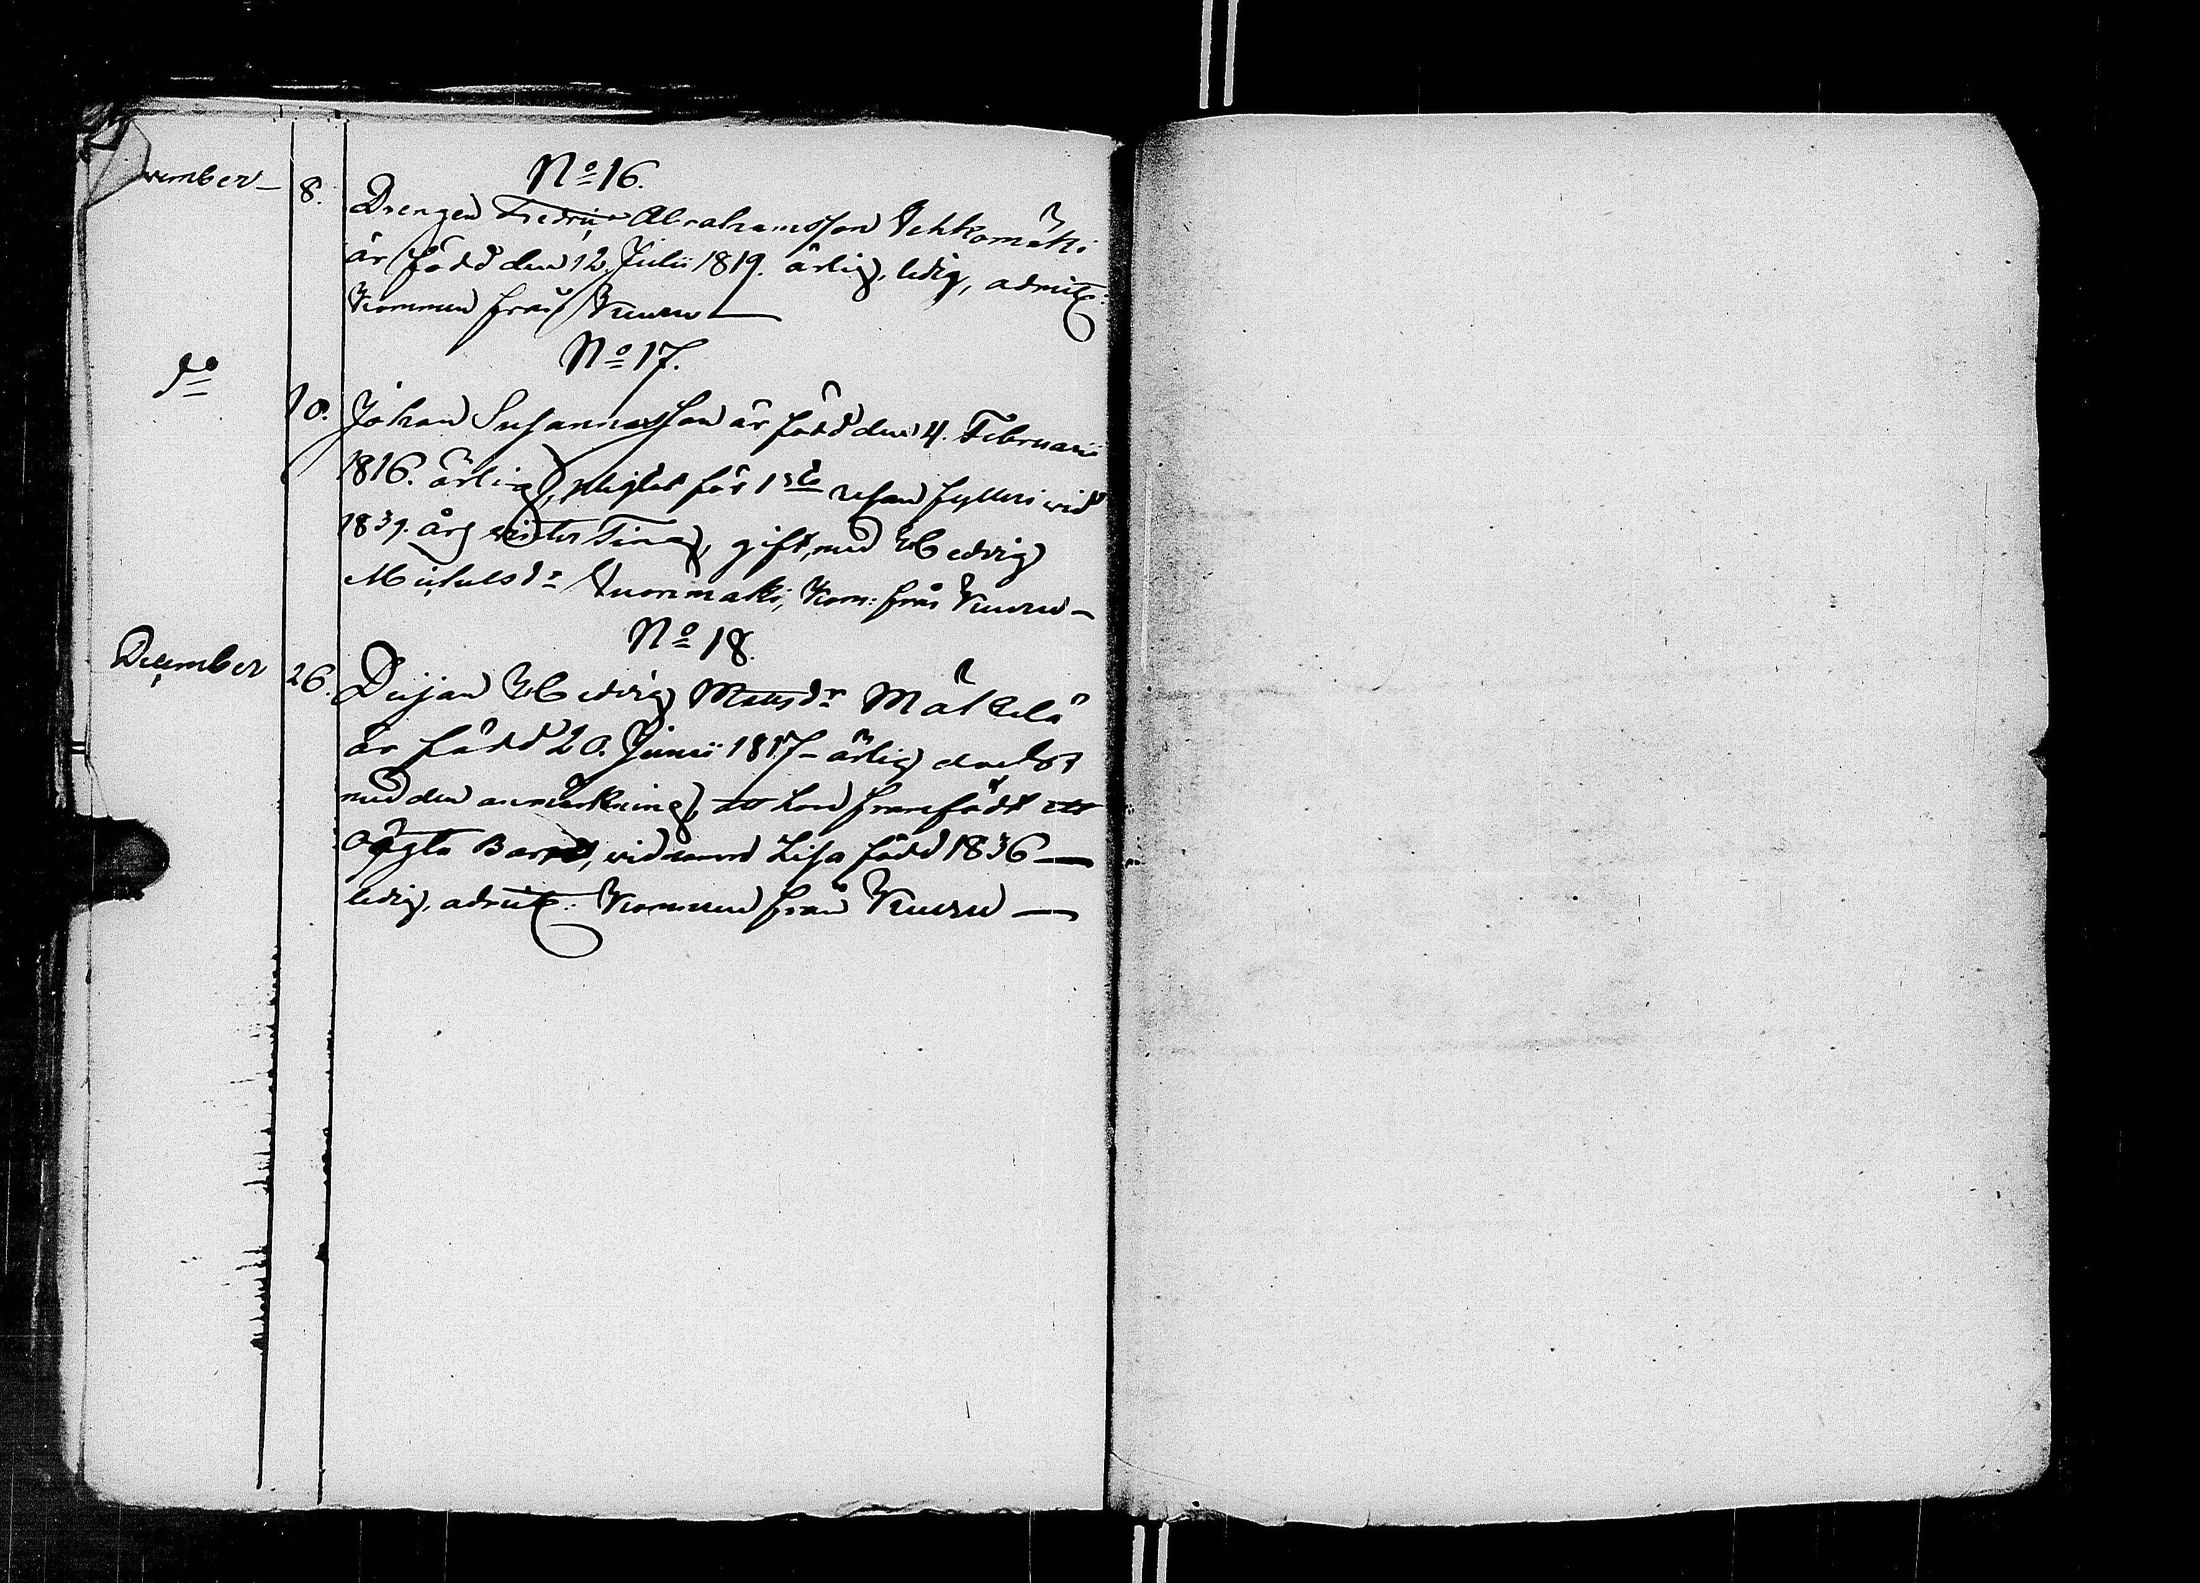 No 16.
vember 8. Drengen Fredric Abrahamsson Vehkomäki
är född den 12 Julii 1819. ärlig, ledig, admitt:
Kommen från Kuuru —
No 17.
do 10. Johan Susannasson är född den 4. Februarii
1816. ärlig, pligtat för 1sta resan fylleri vid
1839. års vinter Ting, gift, med Hedvig
Michelsdr Vuorimäki, Kom: från Kuuru —
No 18.
December 26. Pijan Hedvig Mattsdr Mäkelä
är född 20. Junii 1817 – ärlig
med den anmärkning, att hon framfödt ett
oägta Barn, vid namn Lisa född 1836 —
ledig, admitt: Kommen från Kuuru —